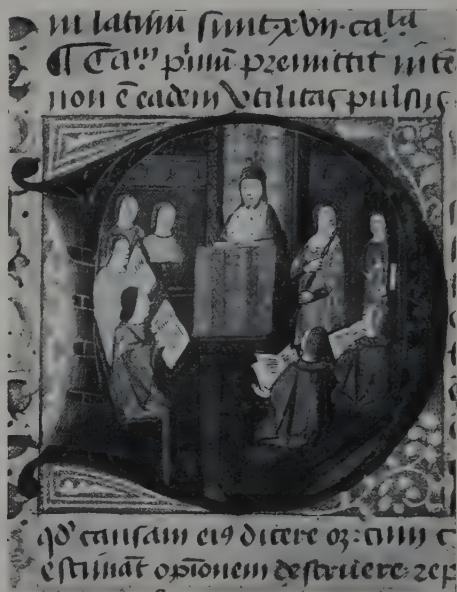 in latinū sunt·xvii·caᶫᵃ
¶ Caᵐ p'mū premittit inte
non ē eadem vtilitas pulsus
qd' causam eiꝯ dicere oꝫ: cum c
estimāt opīonem destruere: rep